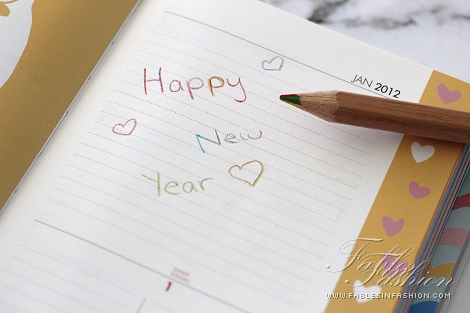 JAN 2012
Happy
New
Year
1
Fables
in Fashion
WWW.FABLESINFASHION.COM